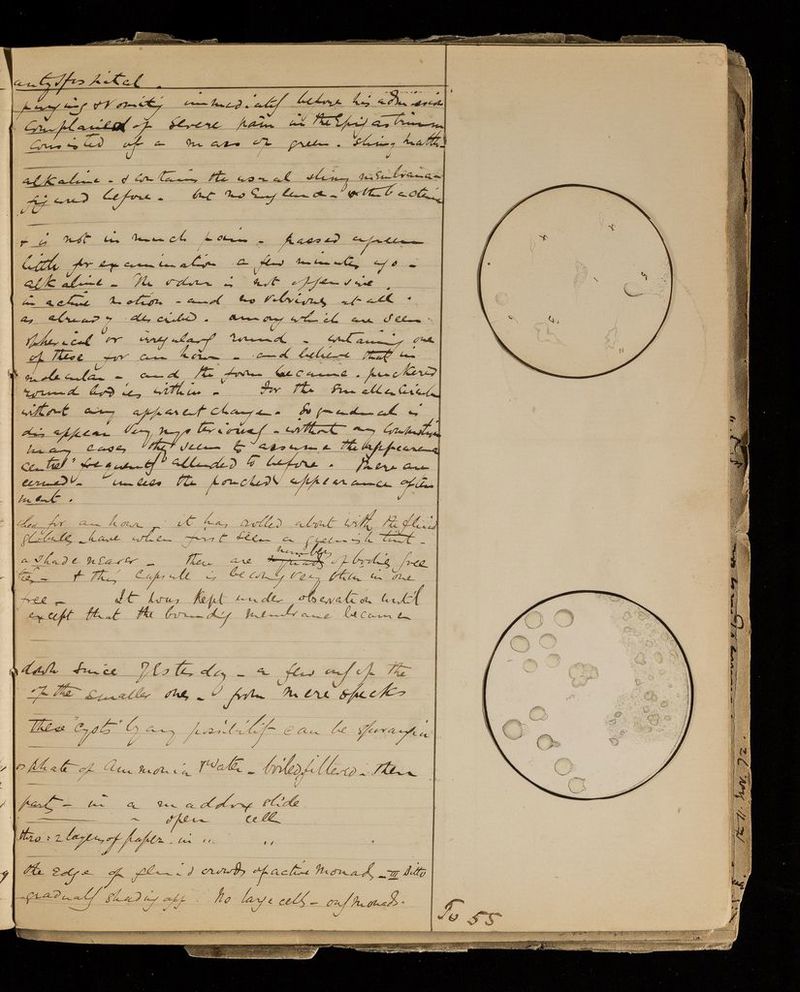 purging & vomiting immediately before his admission
Complained of severe pain in the Epigastrium
Consisted of a mass of green, slimy matter
alkaline - & contains the usual slimy membranae
figured before - but no Euglenae - with bacteria
& is not in much pain - passed a green
little for examination a few minutes ago -
alkaline - The odour is not offensive
in active motion - and no vibriones at all -
as already described - among which are seen
spherical or irregularly round - containing one
of these for an hour - and believe that in
molecular - and the form became puckered
round bodies within - For the smaller
without any apparent change - So gradual is
disappear very mysteriously - without any
many cases they seem to assume the appearance
centre" frequently alluded to before. There are
cerned - unless the pouched appearance often
ment.
for an hour - it has rolled about with the fluid
globules have when first seen a greenish tint -
a shade nearer - there are numbers of bodies free
& this capsule is becoming very thin in one
free - It was kept under observation until
except that the bounding membrane became
down since yesterday - a few only of the
of the smaller ones - from mere specks
These "cysts" by any possibility can be sporangia
phate of Ammonia & water - boiled, filtered - then
part - in a maddox slide
" open cell
thro: 2 layers of paper - in " "
the edge of fluid crowds of active monads - III Ditto
gradually shading off. No large cells - only monads.
To 55